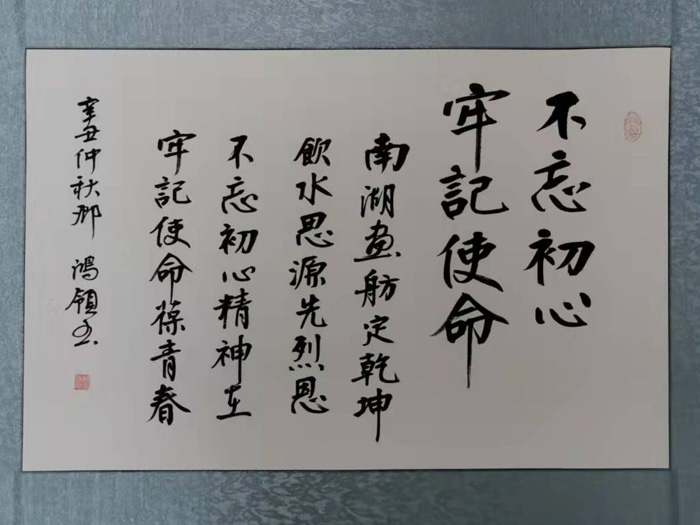 不忘初心
牢記使命
南湖画舫定乾坤
飲水思源先烈恩
不忘初心精神在
牢記使命葆青春
辛丑仲秋那鴻領书